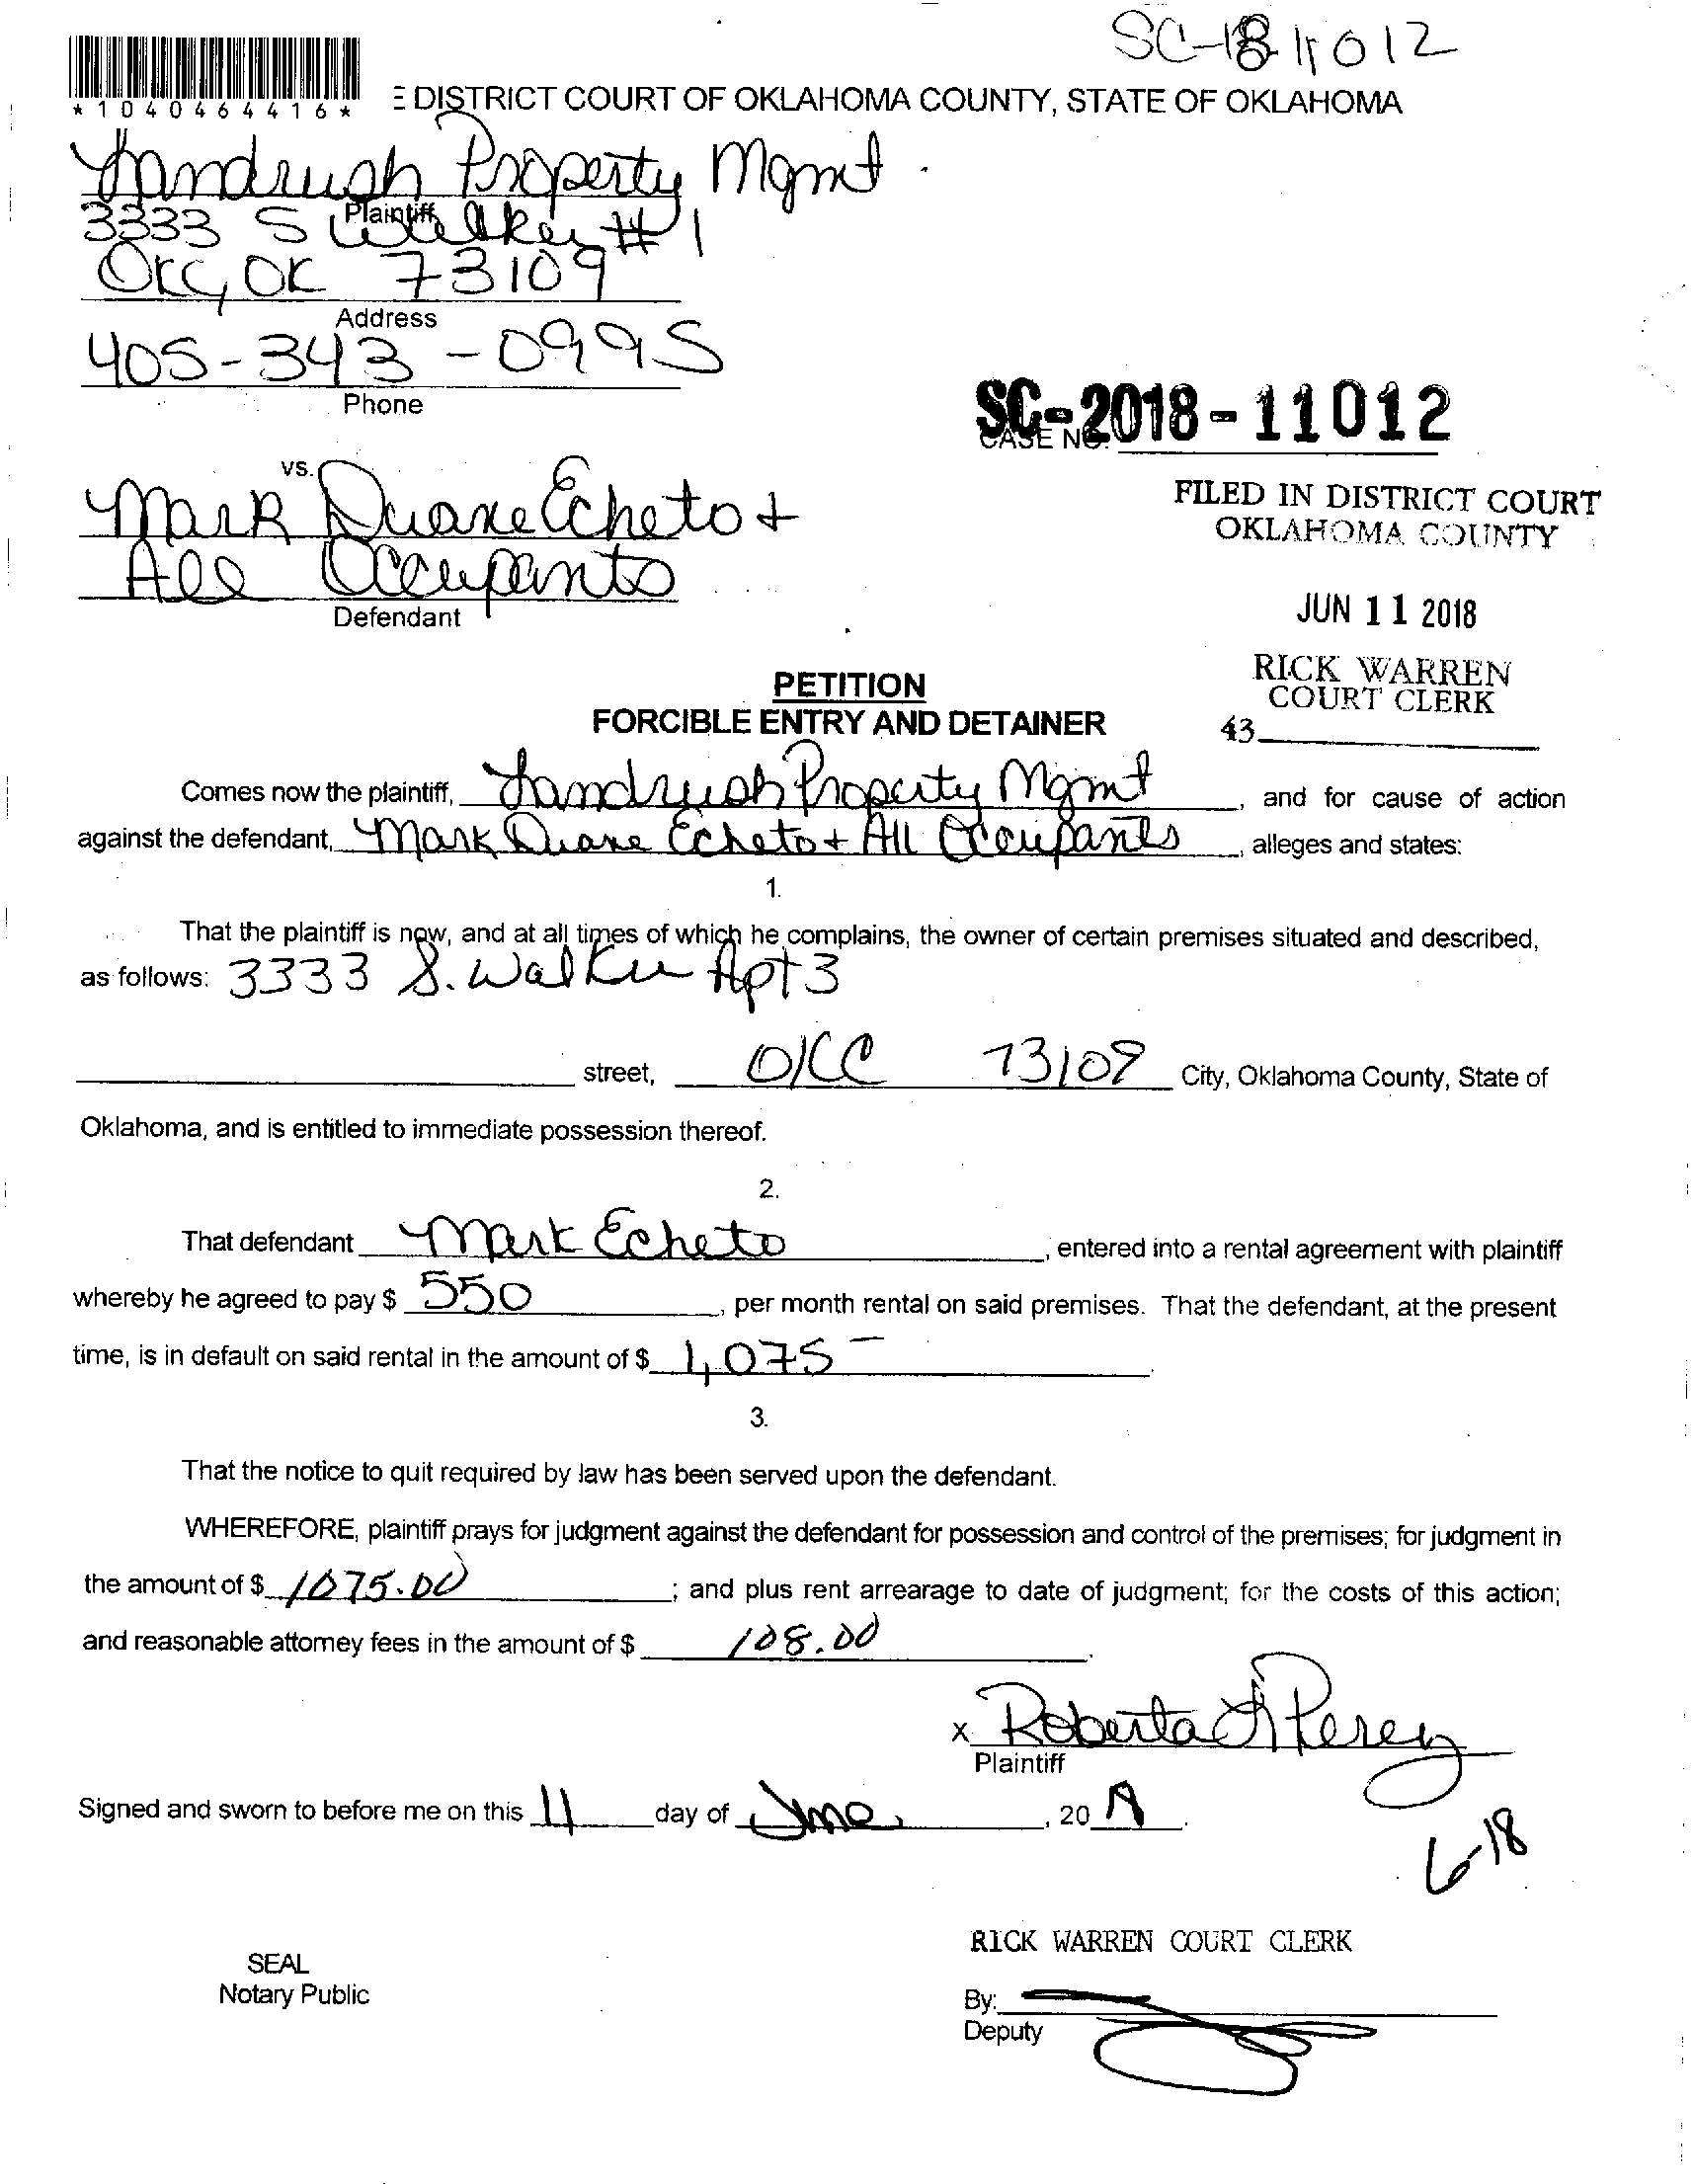 SC-18 11012
*1040464416*
E DISTRICT COURT OF OKLAHOMA COUNTY, STATE OF OKLAHOMA
Landrush Property Mgmt
Plaintiff
3333 S Walker #1
OKC, OK 73109
Address
405-343-0995
Phone
SC-2018-11012
CASE NO.
vs.
Mark Duane Echeto +
All Occupants
Defendant
FILED IN DISTRICT COURT
OKLAHOMA COUNTY
JUN 11 2018
RICK WARREN
COURT CLERK
43
PETITION
FORCIBLE ENTRY AND DETAINER
Comes now the plaintiff, Landrush Property Mgmt, and for cause of action
against the defendant, Mark Duane Echeto + All Occupants, alleges and states:
1.
That the plaintiff is now, and at all times of which he complains, the owner of certain premises situated and described,
as follows: 3333 S. Walker Apt 3
street, OKC 73109 City, Oklahoma County, State of
Oklahoma, and is entitled to immediate possession thereof.
2.
That defendant Mark Echeto, entered into a rental agreement with plaintiff
whereby he agreed to pay $ 550, per month rental on said premises. That the defendant, at the present
time, is in default on said rental in the amount of $ 1,075-.
3.
That the notice to quit required by law has been served upon the defendant.
WHEREFORE, plaintiff prays for judgment against the defendant for possession and control of the premises; for judgment in
the amount of $ 1075.00; and plus rent arrearage to date of judgment; for the costs of this action;
and reasonable attorney fees in the amount of $ 108.00.
x Roberta Perez
Plaintiff
Signed and sworn to before me on this 11 day of June, 20
6-18
RICK WARREN COURT CLERK
SEAL
Notary Public
By:
Deputy